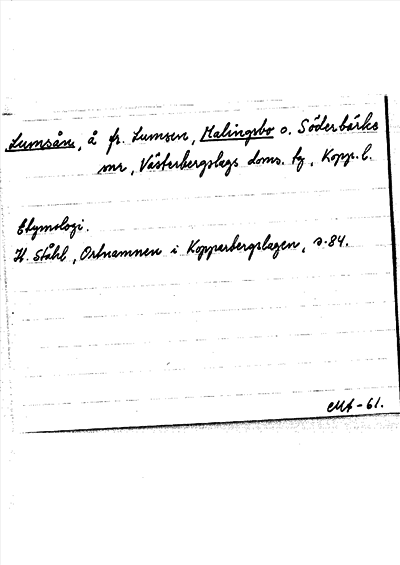 Lumsån, å fr. Lumsen, Malingsbo o. Söderbärke
snr, Västerbergslags doms. tg, Kopp. l.
Etymologi.
H. Ståhl, Ortnamnen i Kopparbergslagen, s. 84.
MA-61.